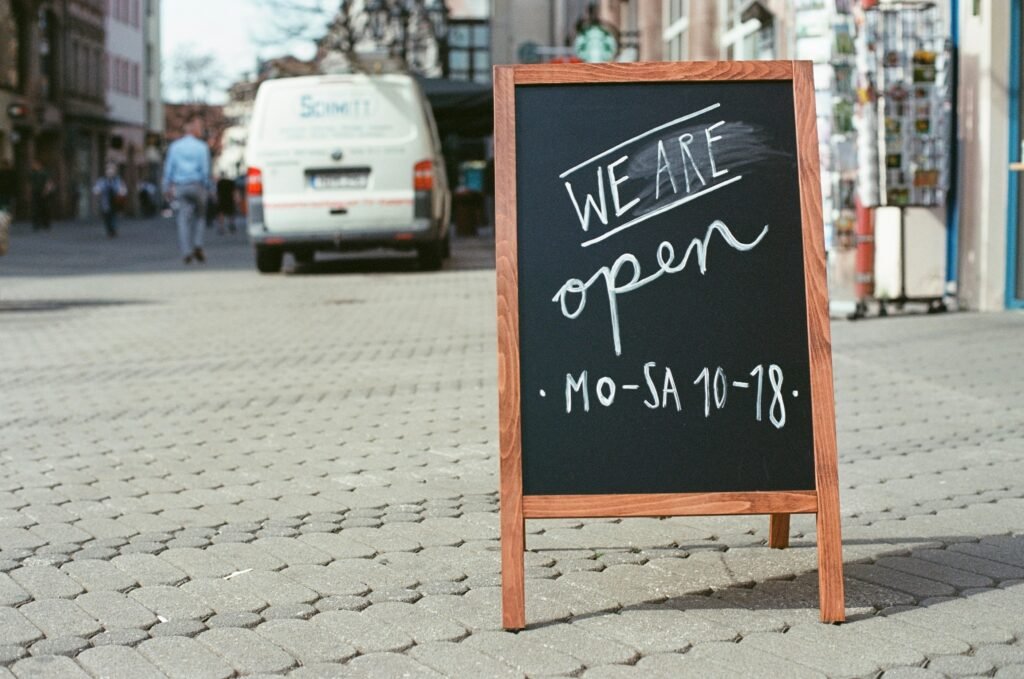 SCHMITT
WE ARE
open
· MO-SA 10-18 ·